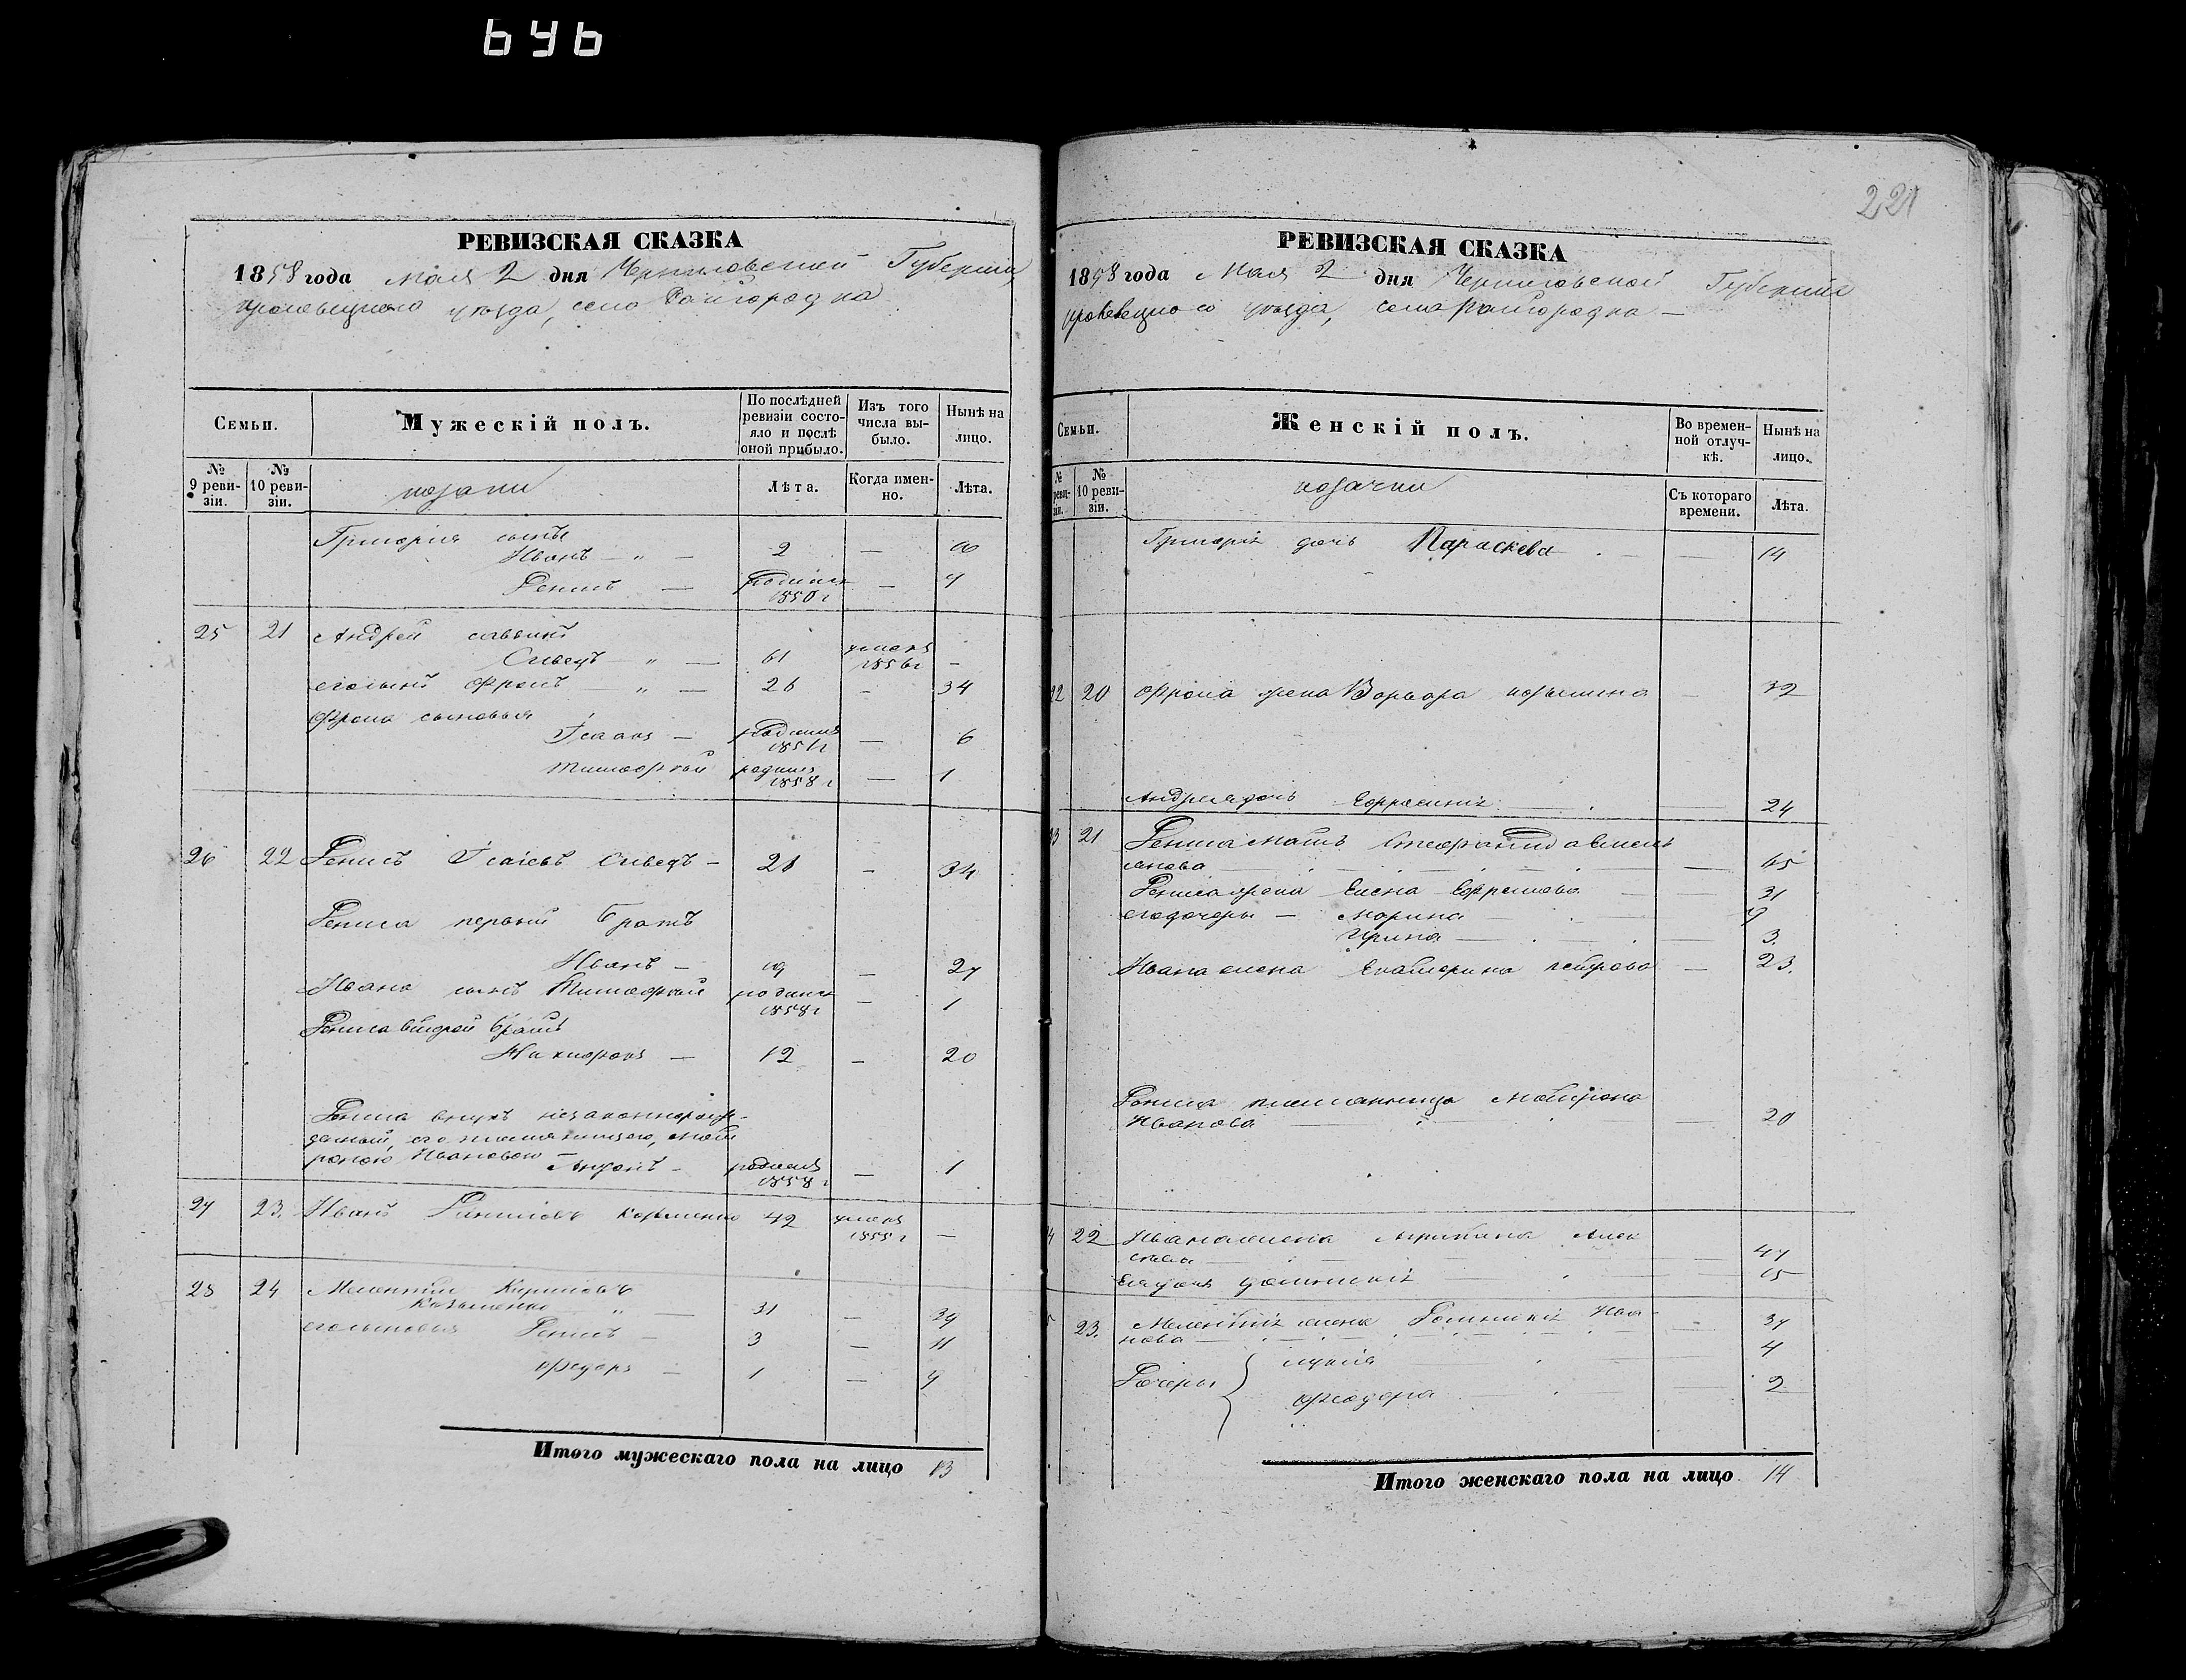 646
221
РЕВИЗСКАЯ СКАЗКА
1858 года Мая 2 дня Черниговской Губернии
уезда, села Райгородка
Семьи.
Мужескій полъ.
По послѣдней ревизіи состояло и послѣ оной прибыло.
Изъ того числа выбыло.
Нынѣ на лицо.
№ 9 ревизіи.
№ 10 ревизіи.
козаки
Лѣта.
Когда именно.
Лѣта.
Григорія сынъ
Иванъ — " — 2 —
Денисъ — родился 1850 г — 7
25 21 Андрей Саввинъ
Сивецъ — " — 61 умеръ 1856 г —
его сынъ Фролъ — " — 26 — 34
Фрола сыновья
Ісаакъ — родился 1851 г — 6
Тимофей родился 1858 г — 1
26 22 Денисъ Ісаіевъ Сивецъ — — 34
Дениса первый братъ
Иванъ — 19 — 27
Ивана сынъ Тимофей родился 1858 г — 1
Дениса второй братъ
Никифоръ — 12 — 20
Дениса внукъ незаконнорож-
денный, его племянницею, Мат
роною Ивановою —
Антонъ — родился 1858 г — 1
27 23. Иванъ Козьменко 42 умеръ 1855 г —
28 24 Мелентий Кириловъ
Козьменко " — 31 — 39
его сыновья Денисъ — 3 — 11
Федоръ — 1 — 9
Итого мужескаго пола на лицо 13
РЕВИЗСКАЯ СКАЗКА
1858 года Мая 2 дня Черниговской Губерніи
уезда, села Райгородка —
Семьи.
Женскій полъ.
Во временной отлучкѣ.
Нынѣ на лицо.
№ реви-зіи.
№ 10 ревизіи.
козачки
Съ котораго времени.
Лѣта.
Григорія дочь Параскева — — 14
22 20 Фрола жена Варвара Козьмина — 32
Андрея дочь Ефросинія — 24
23 21 Дениса мать Стефанида Емель
янова — 65
Дениса жена Елена Ефремова — 31
его дочеры — Марина — 9
Ирина — 3.
Ивана жена Екатерина Петрова — 23.
Дениса племянница Матрона
Иванова — 20
22 Ивана жена Агрипина Алек
— 47
Ея дочь — 15
23. Мелентія жена Домникія Ива
нова — 37
Дочеры { Лукія — 4
Феодора — 2
Итого женскаго пола на лицо 14